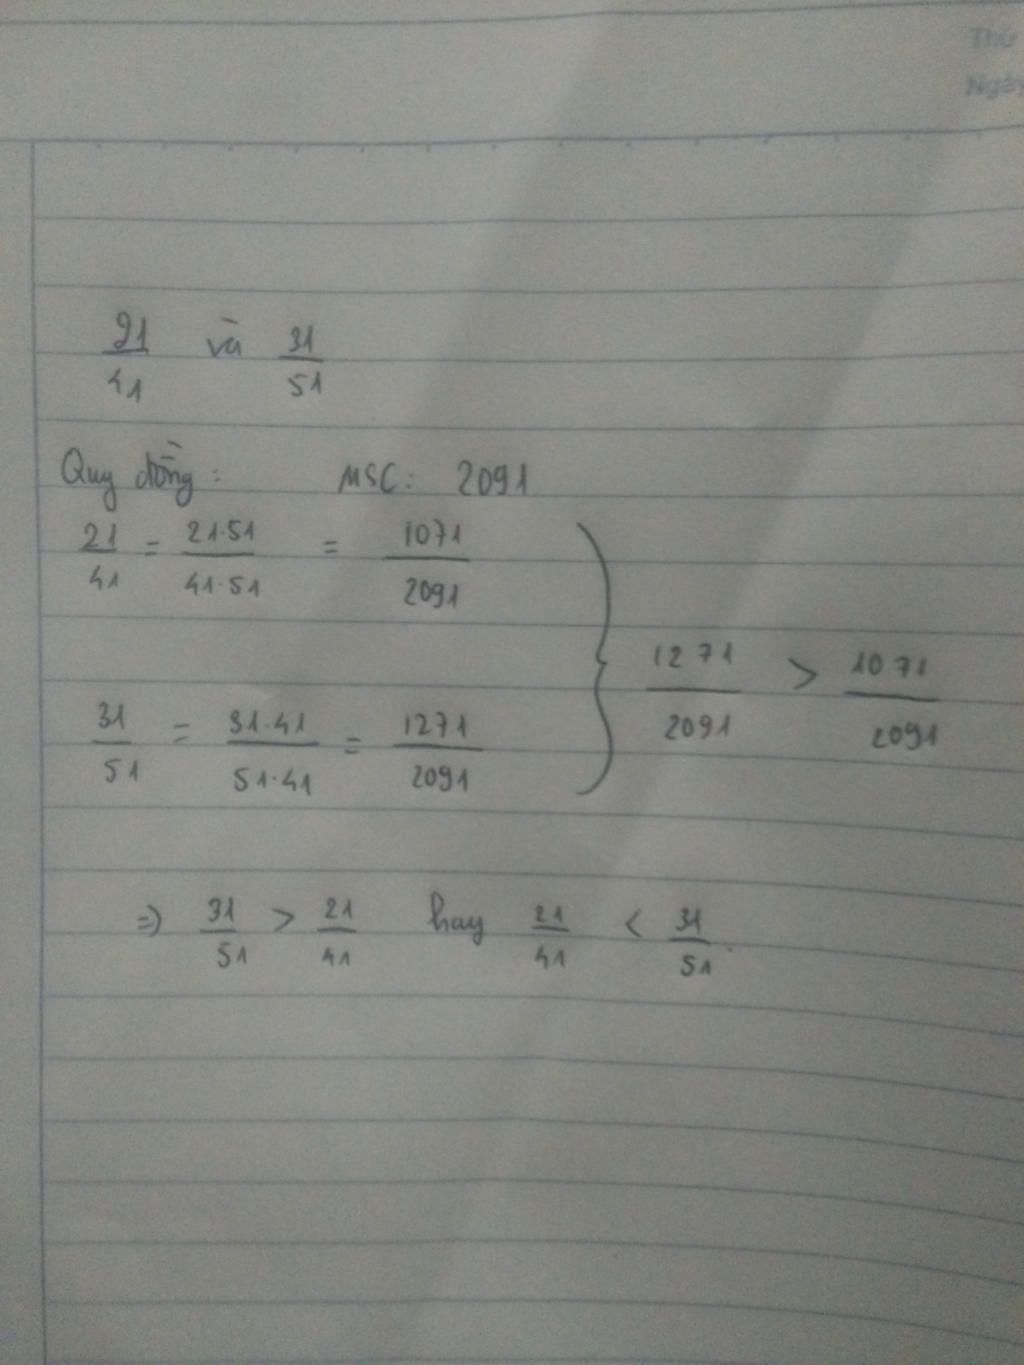 Thứ
Ngày
21/41 và 31/51
Quy đồng: MSC: 2091
21/41 = 21·51/41·51 = 1071/2091
31/51 = 31·41/51·41 = 1271/2091
1271/2091 > 1071/2091
=> 31/51 > 21/41 hay 21/41 < 31/51.